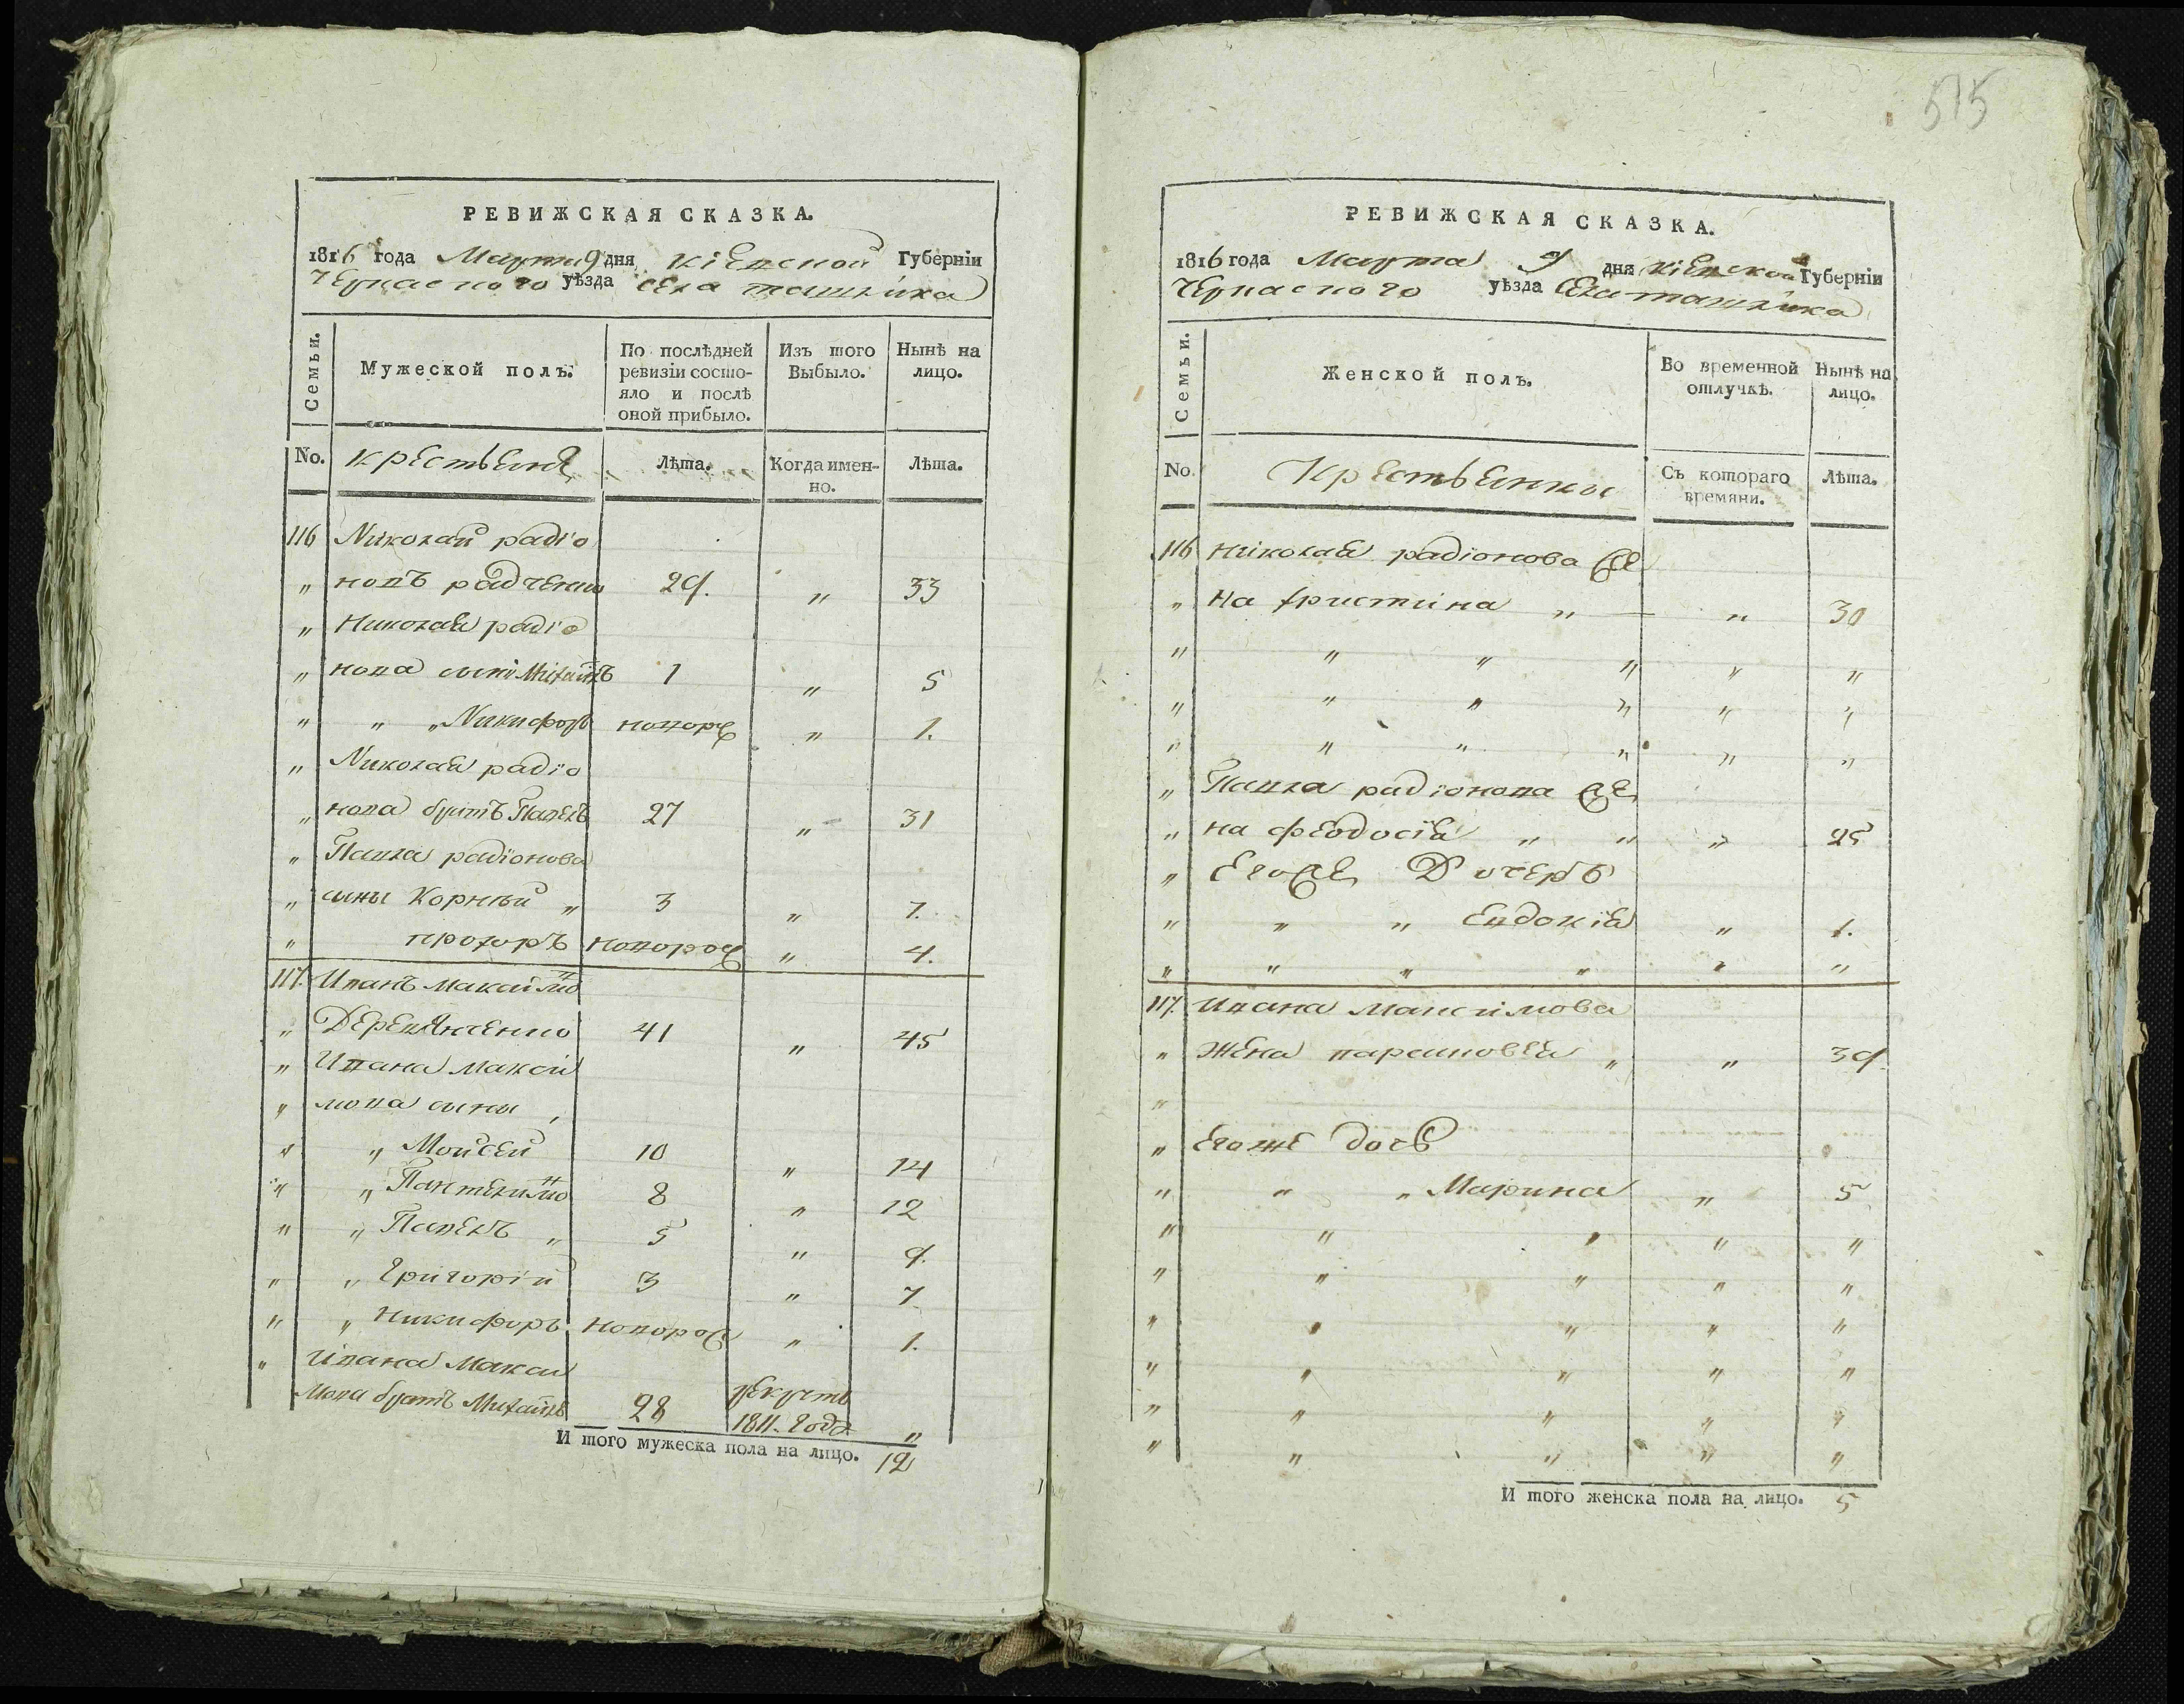 515
РЕВИЖСКАЯ СКАЗКА.
1816 года Марта 9 дня Кіевской Губерніи
Черкаского уѣзда села ташлика
Семьи.
Мужеской полъ.
По послѣдней ревизіи состояло и послѣ оной прибыло.
Изъ того Выбыло.
Нынѣ на лицо.
No. крестьяне
Лѣта.
Когда именно.
Лѣта.
116 Николай радіо
„ новъ радченко 29. „ 33
„ Николая радіо
„ нова сыни Михаилъ 1 „ 5
„ „ „ Никифоръ новоро „ 1.
„ Николая радіо
„ нова братъ Павелъ 27 „ 31
„ Павла радіонова
„ сины Корнѣй „ 3 „ 7.
„ прохоръ новорож „ 4.
117. Иванъ максимо
„ Деревянченко 41 „ 45
„ Ивана макси
„ мова сины „
„ „ Мойсей 10 „ 14
„ „ Пантелимо 8 „ 12
„ „ Павелъ „ 5 „ 9.
„ „ Григорій 3 „ 7
„ „ Никифоръ новорож „ 1.
„ Ивана Макси
мова братъ Михаилъ 28 рекрутъ 1811. года „
И того мужеска пола на лицо. 12
РЕВИЖСКАЯ СКАЗКА.
1816 года Марта 9 дня Кіевской Губерніи
Черкаского уѣзда села ташлика
Семьи.
Женской полъ.
Во временной отлучкѣ.
Нынѣ на лицо.
No. Крестьянки
Съ котораго времяни.
Лѣта.
116 Николая радіонова же
„ на христина „ „ 30
„ „ „ „ „ „
„ „ „ „ „ „
„ „ „ „ „ „
„ Павла радіонова же
„ на феодосія „ „ „ 25
„ Егоже Дочерь
„ „ „ Евдокія „ 1.
„ „ „ „ „ „
117. Ивана Максимова
„ Жена парасковея „ „ 39.
„
„ Егоже дочь
„ „ „ Марина „ 5
„ „ „ „ „
„ „ „ „ „
„ „ „ „ „
„ „ „ „ „
„ „ „ „ „
„ „ „ „ „
И того женска пола на лицо. 5